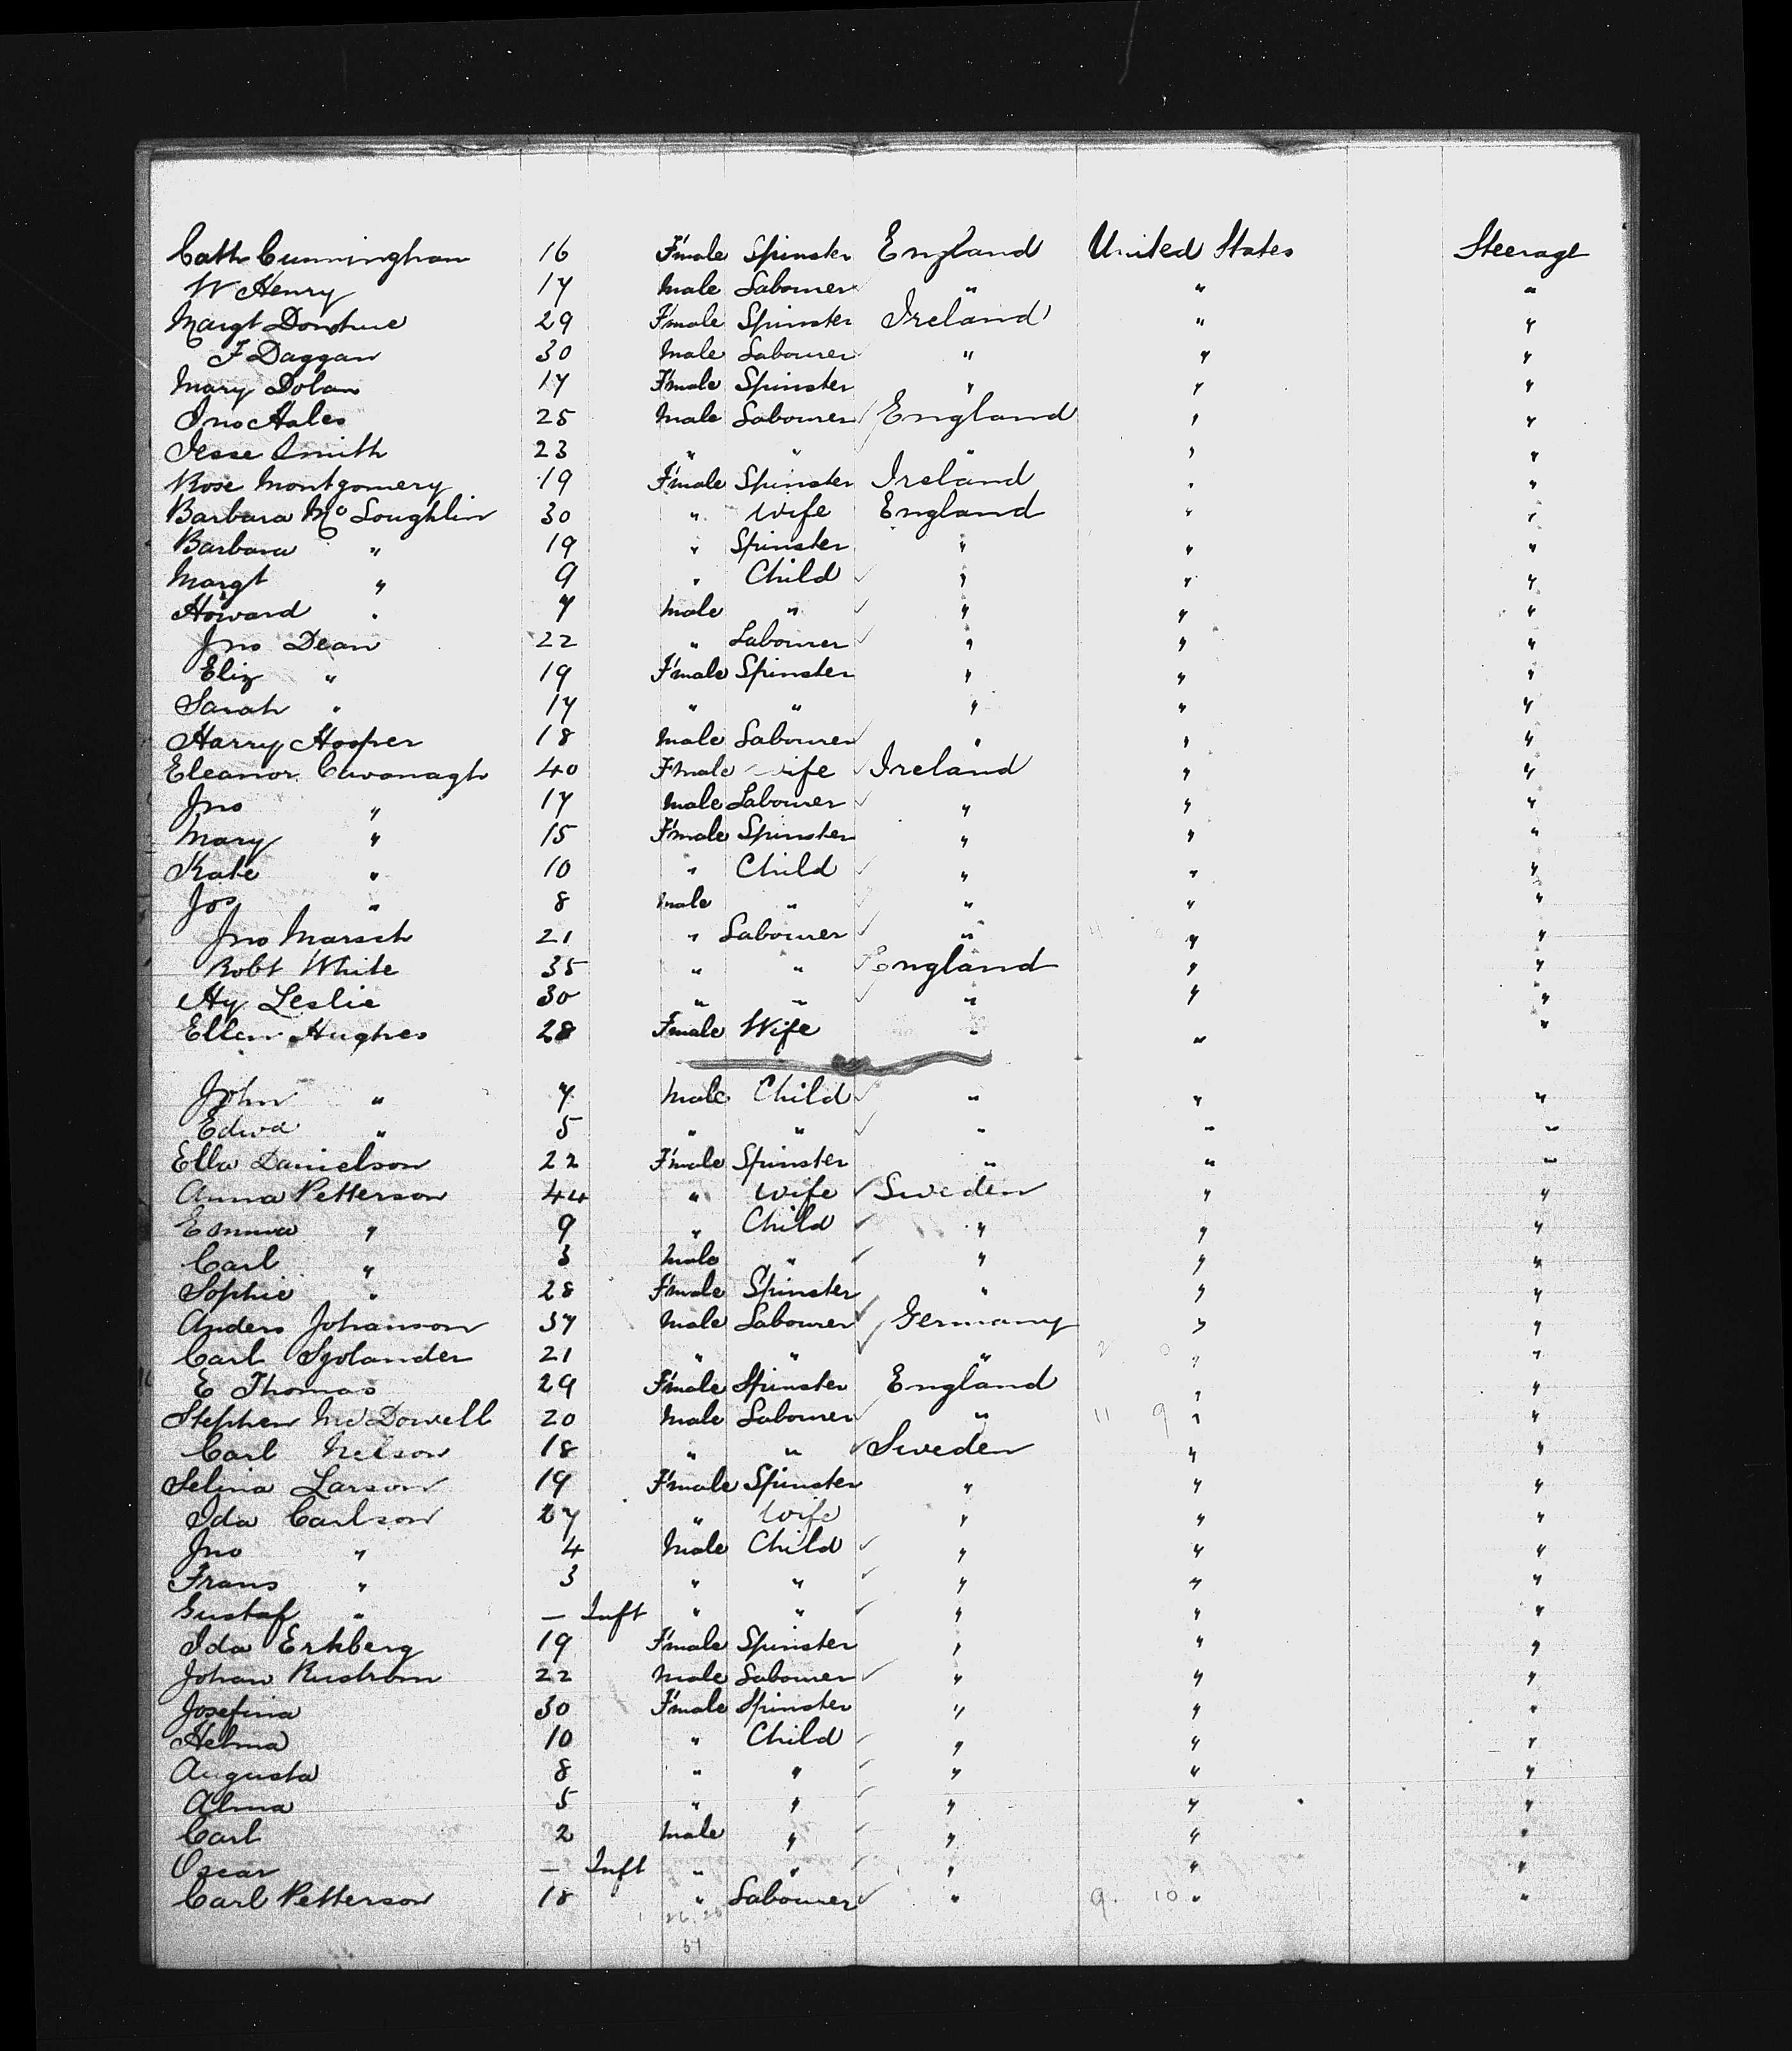 Cath Cunningham 16 F'male Spinster England United States Steerage
W Henry 17 Male Labourer " " "
Margt Donohue 29 F'male Spinster Ireland " "
F Daggan 30 Male Labourer " " "
Mary Dolan 17 F'male Spinster " " "
Jno Hales 25 Male Labourer England " "
Jesse Smith 23 " " " " "
Rose Montgomery 19 F'male Spinster Ireland " "
Barbara McLoughlin 30 " Wife England " "
Barbara " 19 " Spinster " " "
Margt " 9 " Child " " "
Howard " 7 Male " " " "
Jno Dean 22 " Labourer " " "
Eliz " 19 F'male Spinster " " "
Sarah " 17 " " " " "
Harry Hosper 18 Male Labourer " " "
Eleanor Cavanagh 40 F'male Wife Ireland " "
Jno " 17 Male Labourer " " "
Mary " 15 F'male Spinster " " "
Kate " 10 " Child " " "
Jos " 8 Male " " " "
Jno Marsch 21 " Labourer " " "
Robt White 35 " " England " "
Hy Leslie 30 " " " " "
Ellen Hughes 28 F'male Wife " " "
John " 7 Male Child " " "
Edwd " 5 " " " " "
Ella Danielson 22 F'male Spinster " " "
Anna Petterson 44 " Wife Sweden " "
Emma " 9 " Child " " "
Carl " 3 Male " " " "
Sophie " 28 F'male Spinster " " "
Anders Johanson 37 Male Labourer Germany " "
Carl Sjolander 21 " " " " "
E Thomas 29 F'male Spinster England " "
Stephen McDowell 20 Male Labourer " 11 9 " "
Carl Nelson 18 " " Sweden " "
Selina Larson 19 F'male Spinster " " "
Ida Carlson 27 " Wife " " "
Jno " 4 Male Child " " "
Frans " 3 " " " " "
Gustaf " — Inft " " " " "
Ida Erkberg 19 F'male Spinster " " "
Johan Rustrom 22 Male Labourer " " "
Josefina 30 F'male Spinster " " "
Helma 10 " Child " " "
Augusta 8 " " " " "
Alma 5 " " " " "
Carl 2 Male " " " "
Oscar — Inft " " " " "
Carl Petterson 18 " Labourer " 9. 10 " "